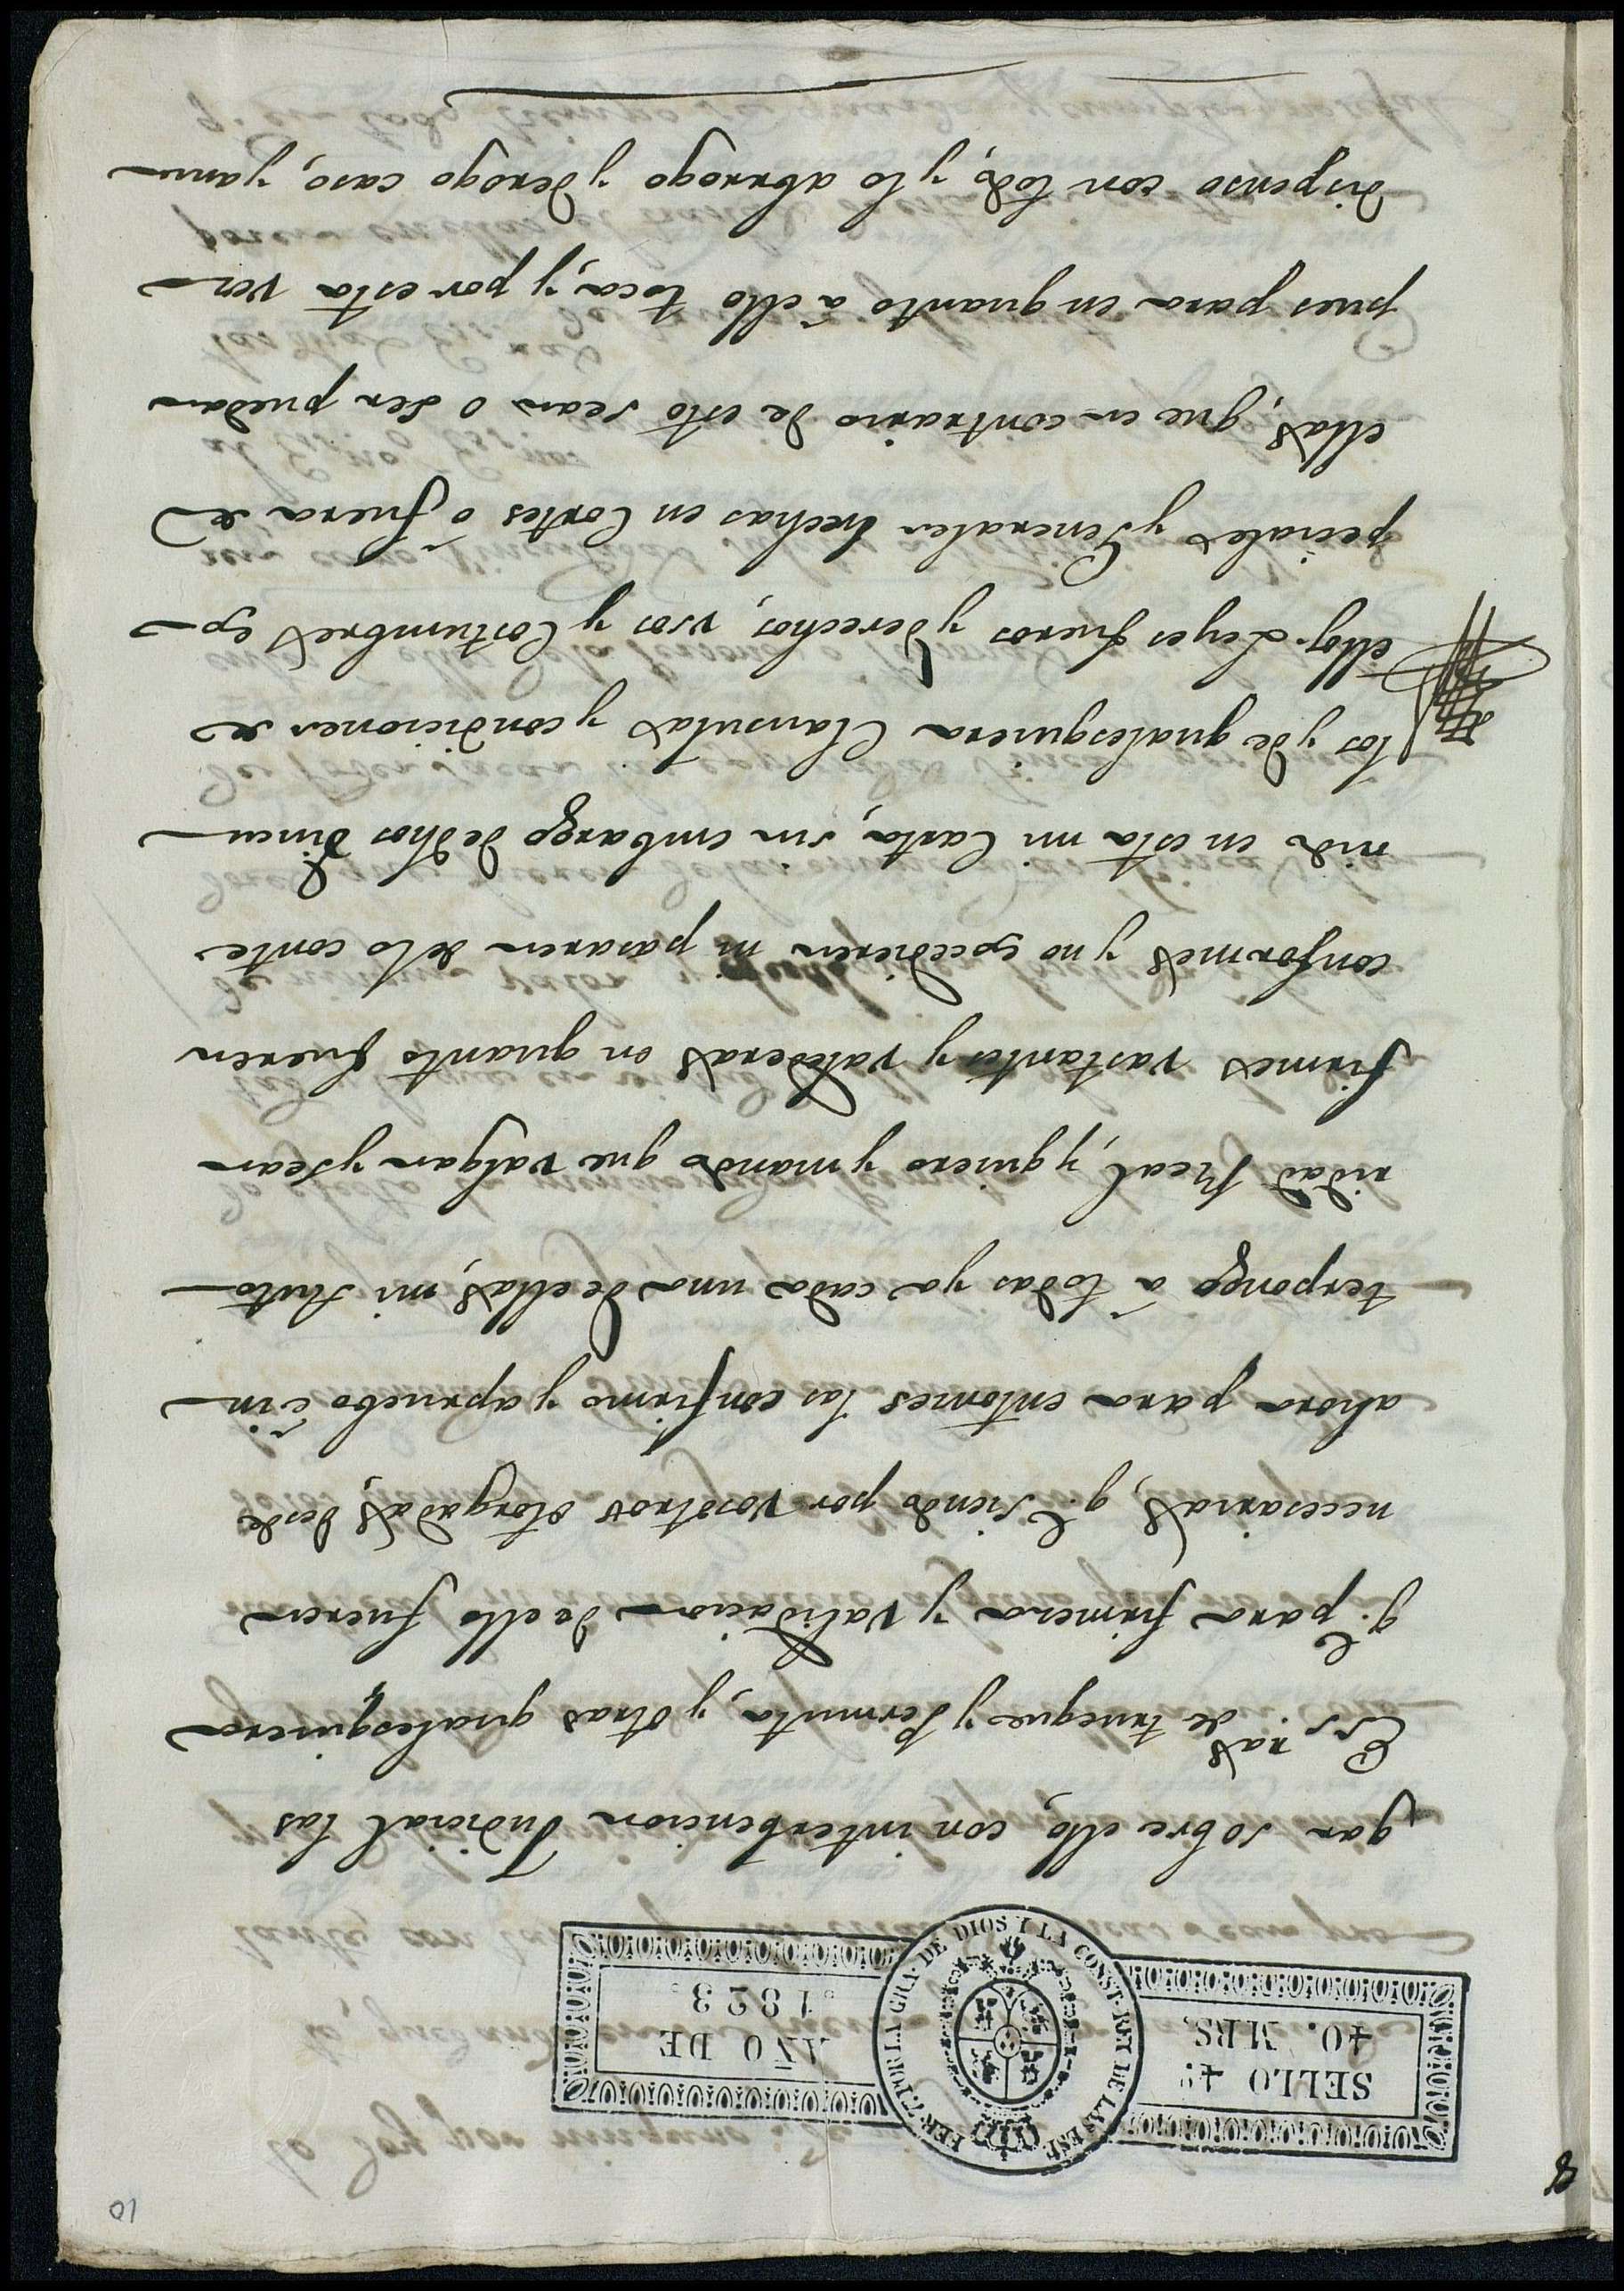 10
8
SELLO 4º
40. MRS,
FER. 7. POR LA GRA. DE DIOS I LA CONST. REI DE LAS ESP.
AÑO DE
1823.
gar sobre ello, con interbencion Judicial las
Ess.ras de trueque y Permuta, y otras qualesquiera
q.e para firmeza y validacion de ello fueren
necesarias, q.e siendo por vosotros otorgadas, desde
ahora para entonces las confirmo y apruebo è in
terpongo à todas ya cada una de ellas, mi Auto
ridad Real, y quiero y mando que valgan y sean
firmes vastantes y valederas en quanto fueren
conformes y no excedieren ni pasaren delo conte
nido en esta mi Carta, sin embargo de dhos Vincu
los y de qualesquiera Clausulas y condiciones de
ellos Leyes fueros y derechos, vsos y Costumbres es
peciales y Generales hechas en Cortes ò fuera de
ellas, que en contrario de esto sean o ser puedan
pues para en quanto à ello toca, y por esta vez
dispenso con todo, y lo abrrogo y derogo caso, y anu